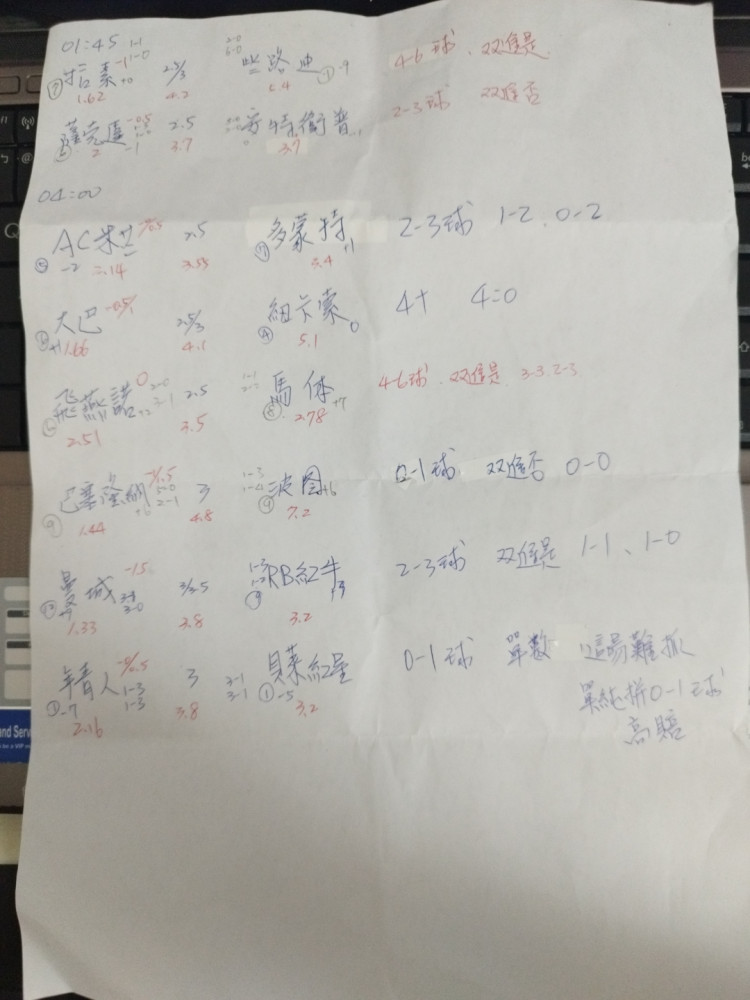 01:45
拉素 -1 1-1 1-0 +0 2.5/3 2-0 些路迪 ① -9 4-6球、双進是
⑦ 1.62 4.2 5.4
薩克達 -0.5 2.5 安特衛普 2-3球 双進否
2 -1 3.7 3.7
04:00
AC米兰 2.5 多蒙特 +1 2-3球 1-2、0-2
-2 2.14 3.55 3.4
大巴 -0.5/1 2.5/3 紐卡索 0 4+ 4=0
+1 1.66 4.1 ④ 5.1
飛燕諾 0 2-0 3-1 +2 2.5 1-1 馬体 +7 4-6球、双進是、3-3、2-3
2.51 3.5 ⑧ 2.78
巴塞隆納 5-0 2-1 +6 3 1-3 波圖 +6 0-1球 双進否 0-0
⑨ 1.44 4.8 ⑨ 7.2
曼城 -1.5 3-0 3/3.5 1-3 RB紅牛 2-3球 双進是 1-1、1-0
1.33 3.8 3.2
年青人 1-3 1-3 3 3-1 3-1 貝萊紅星 0-1球 單數 這場難抓
① -7 2.16 3.8 ① -5 3.2 單純拼0-1球
高賠
and Serv